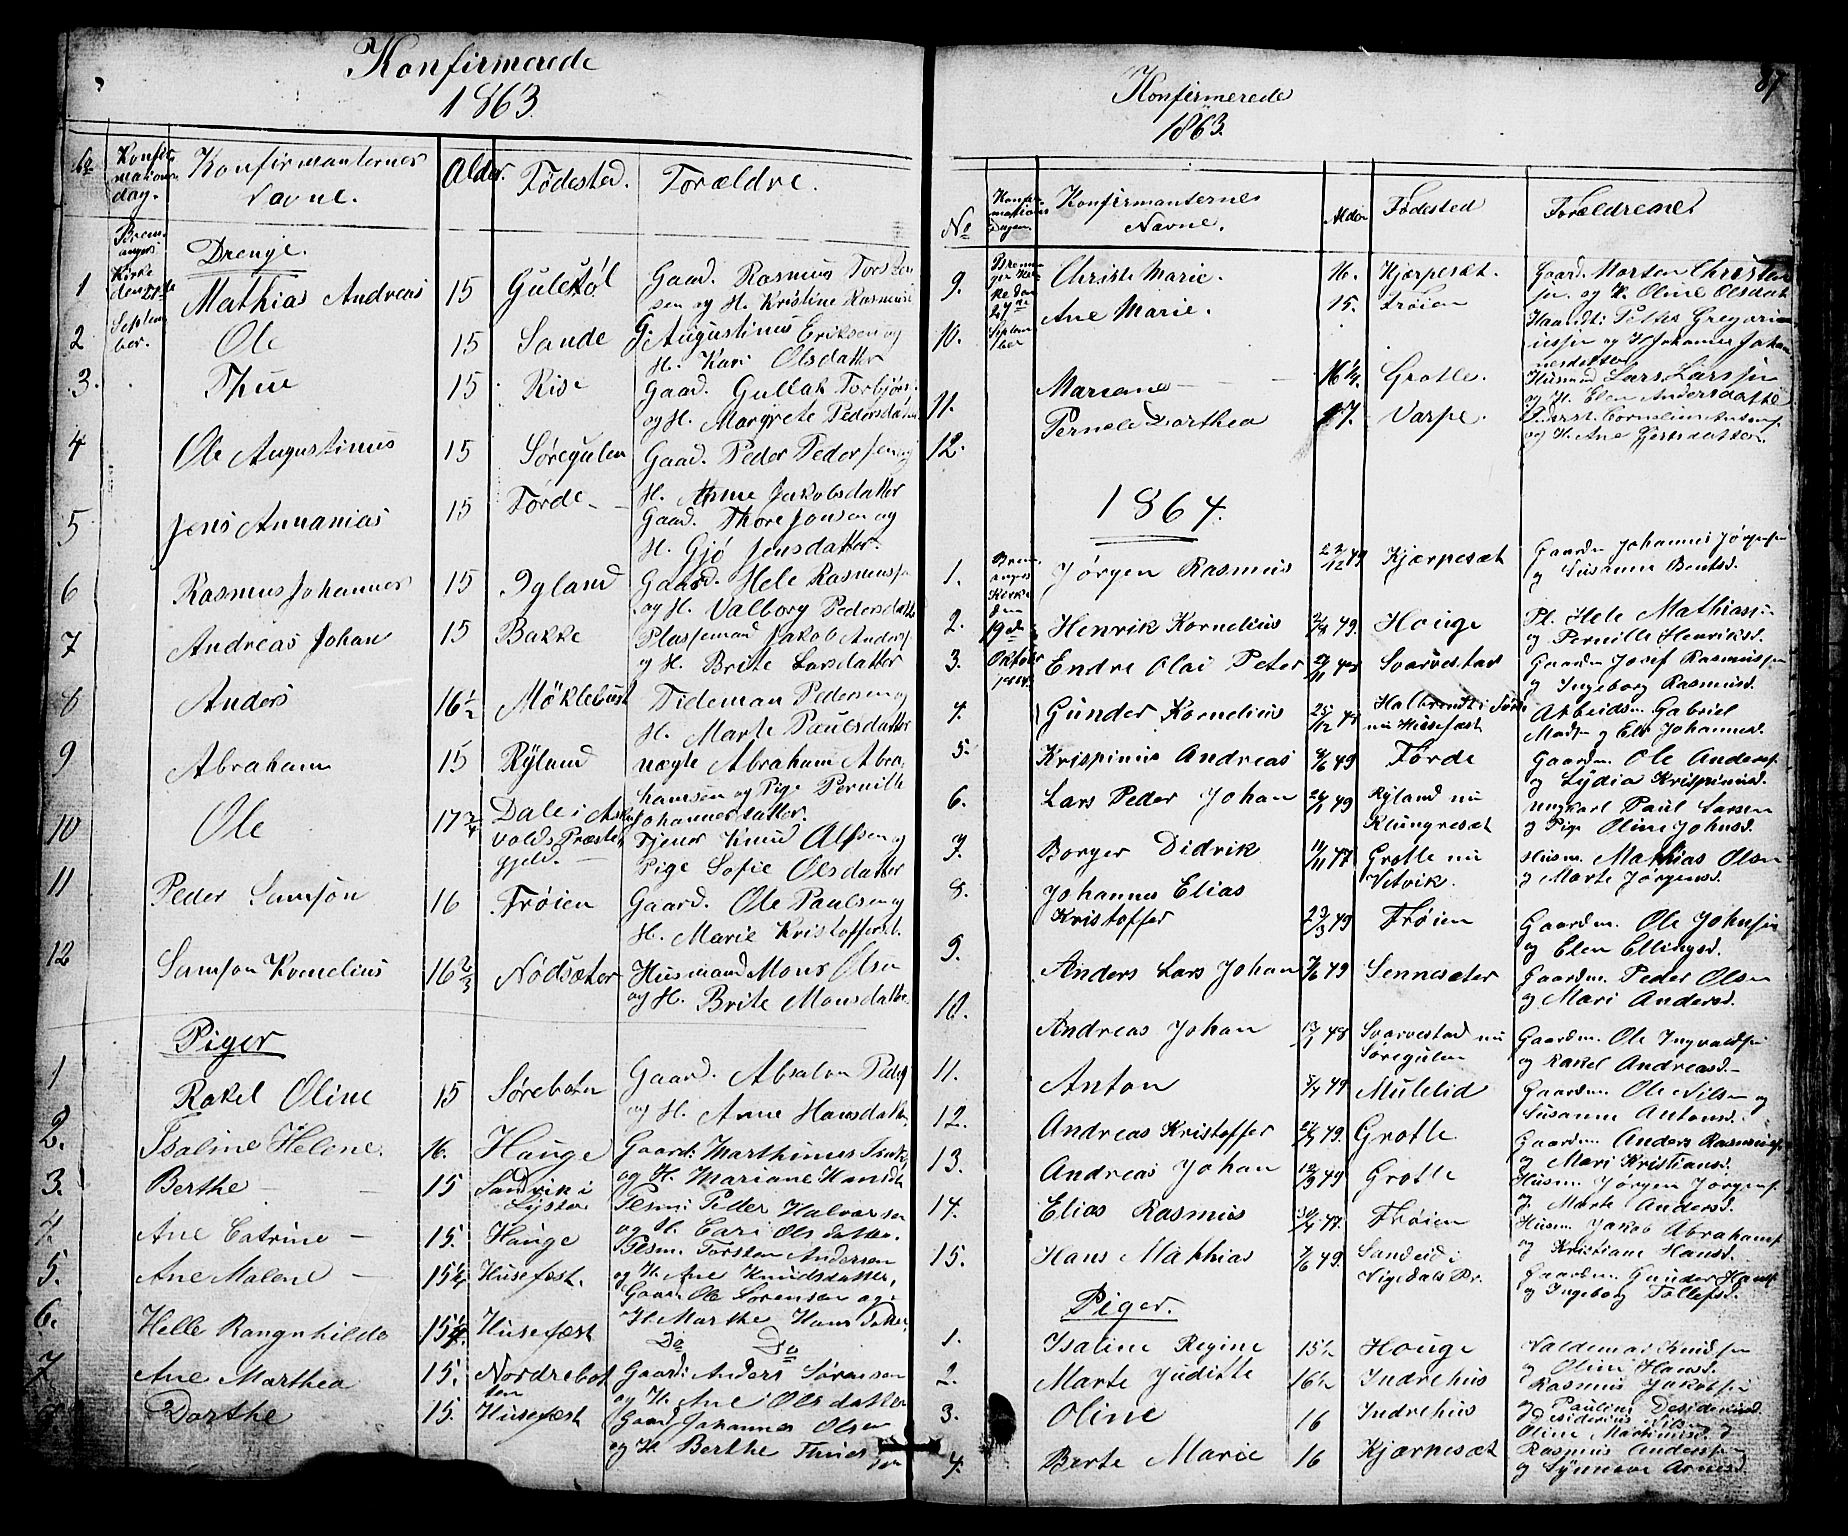 Konfirmerede
1863.
No Konfirmationsdag. Konfirmanternes Navne. Alder. Fødested. Forældre.
Bremangers Kirke den September.
Drenge.
1 Mathias Andreas 15 Gulestøl Gaard. Rasmus Torsten
sen og H. Kristine Rasmus
2 Ole 15 Sande G. Augustinus Eriksen og
H. Kari Olsdatter
3. Thue 15 Rise Gaad. Gullak Torbjørs
og H. Margrete Pedersdatter
4 Ole Augustinus 15 Søregulen Gaad. Peder Pedersen og
H. Anne Jakobsdatter
5 Jens Annanias 15 Førde Gaad. Thore Jonsen og
H. Gjø Jensdatter.
6 Rasmus Johannes 15 Igland Gaard. Hele Rasmuss.
og H. Valborg Pedersdatter
7 Andreas Johan 15 Bakke Plassemand Jakob Anders.
og H. Brite Larsdatter
8 Anders 16½ Møklebust Tideman Pedersen og
H. Marte Paulsdatter
9 Abraham 15 Ryland uægte Abraham Abra
hamsen og Pige Pernille
Johannesdatter.
10 Ole 17¾ Dale i Ask
volds Præste
gjeld. Tjener Knud Alfsen og
Pige Sofie Olsdatter
11 Peder Samson 16 Frøien Gaard. Ole Paulsen og
H. Marie Kristoffersd.
12 Samson Kornelius 16⅔ Nødsæter Husmand Mons Olsen
og H. Brite Monsdatter
Piger
1 Rakel Oline 15 Søreboten Gaard. Absalon Peders
og H. Anne Hansdatter
2. Isaline Helene. 16. Hauge Gaard: Marthinus
og H. Mariane Hansdt
3. Berthe 15 Sandvik i
Lyster Peder Halvorsen
og H. Cari Olsdatter.
4. Ane Catrine 15. Hauge Plsm. Torsten Andersen
og H. Ane Knudsdatter.
5. Ane Malene 15¼ Husefæst. Gaar. Ole Sørensen og
H. Marthe Hansdatter
6. Helle Rangnhilda 15¼. Husefæst Do Do
7 Ane Marthea 15. Nordrebot
ten Gaard: Anders Sørensen
og H. Ane Olsdatter
8. Dorthe 15. Husefæst Gaar Johannes Olsen
og H. Berthe Thues
datr
Konfirmerede
1863.
87
No Konfirmationsdagen. Konfirmanternes Navne. Alder Fødested Forældrene.
Bremanger Kirke den 27de September
9. Christi Marie. 16. Kjærpesæt. Gaard. Morten Christen
sen. og H. Oline Olsdat
10. Ane Marie. 15. Frøien Gregorius
og H. Johanne Johan
nesdatter
11. Mariane 16¼. Grotle. Husmd Lars Larsen
og H. Elen Andersdatter
12. Pernele Dorthea 17. Varpe. Cornelius
og H. Ane
1864.
Bremangers Kirke den 19de Oktober 1864.
1. Jørgen Rasmus 22/12 49 Kjærpesæt Gaardm Johannes Jørgensen
og Susanne Bentsd.
2. Henrik Kornelius 49. Houge Pl. Hele Mathiassen
og Pernille Henriksd.
3. Endre Olai Peter Svarvestad Gaardm Josef Rasmussen
og Ingeborg Rasmusd.
4. Gunder Kornelius Halbrendt i Førde
nu Husefæst Arbeidsm. Gabriel
Mads. og Else Johannesd.
5. Krispinus Andreas 49 Førde Gaardm. Ole Anders.
og Lydia Krispinusd.
6. Lars Peder Johan 49 Ryland nu
Klungresæt Ungkarl Paul Larsen
og Pige Oline Johnsd.
7. Borger Didrik Grotle nu
Vetvik. Husm. Mathias Olsen
og Marte Jørgensd.
8. Johannes Elias
Kristoffer 23/3 49 Frøien Gaardm. Ole Johnsen
og Elen Ellingsd.
9. Anders Lars Johan 49 Sennesæter Gaardm. Peder Olsen
og Mari Andersd.
10. Andreas Johan 48 Svarvestad nu
Søregulen Gaardm. Ole Ingvaldsen
og Rakel Andreasd.
11. Anton 49 Mulelid Gaardm. Ole Nilsen og
Susanne Antonsd.
12. Andreas Kristoffer 49. Grotle Gaardm. Anders Rasmus.
og Mari Kristiansd.
13. Andreas Johan 49 Grotle Husm. Jørgen Jørgens.
og Marte Andersd.
14. Elias Rasmus 47. Frøien Husm. Jakob Abrahams.
og Kristiane Hansd.
15. Hans Mathias 49. Sandeid i
Vigedals Pr. Gaardm. Gunder Hans.
og Ingeborg Tollefsd.
Piger.
1. Isaline Regine 15½ Houge Valdemar Knuds.
og Oline Hansd.
2. Marte Juditte 16½ Indrehus Rasmus Jakobsen
og Pauline Desideriusd.
3. Oline 16 Indrehus Desiderius Nilsen
Oline Martinusd.
4. Berte Marie 16 Kjærpesæt Rasmus Andersen
og Synneve Arnesd.